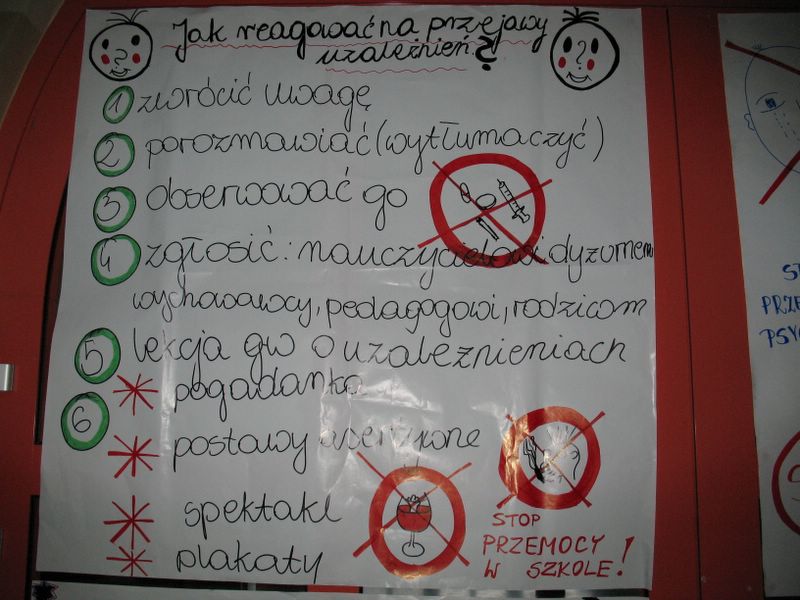 Jak reagować na przejawy
uzależnień?
1 zwrócić uwagę
2 porozmawiać (wytłumaczyć)
3 obserwować go
4 zgłosić: nauczycielowi dyżurnemu
wychowawcy, pedagogowi, rodzicom
5 lekcja gw o uzależnieniach
6 * pogadanka
* postawy asertywne
* spektakl
* plakaty
STOP
PRZEMOCY
W SZKOLE!